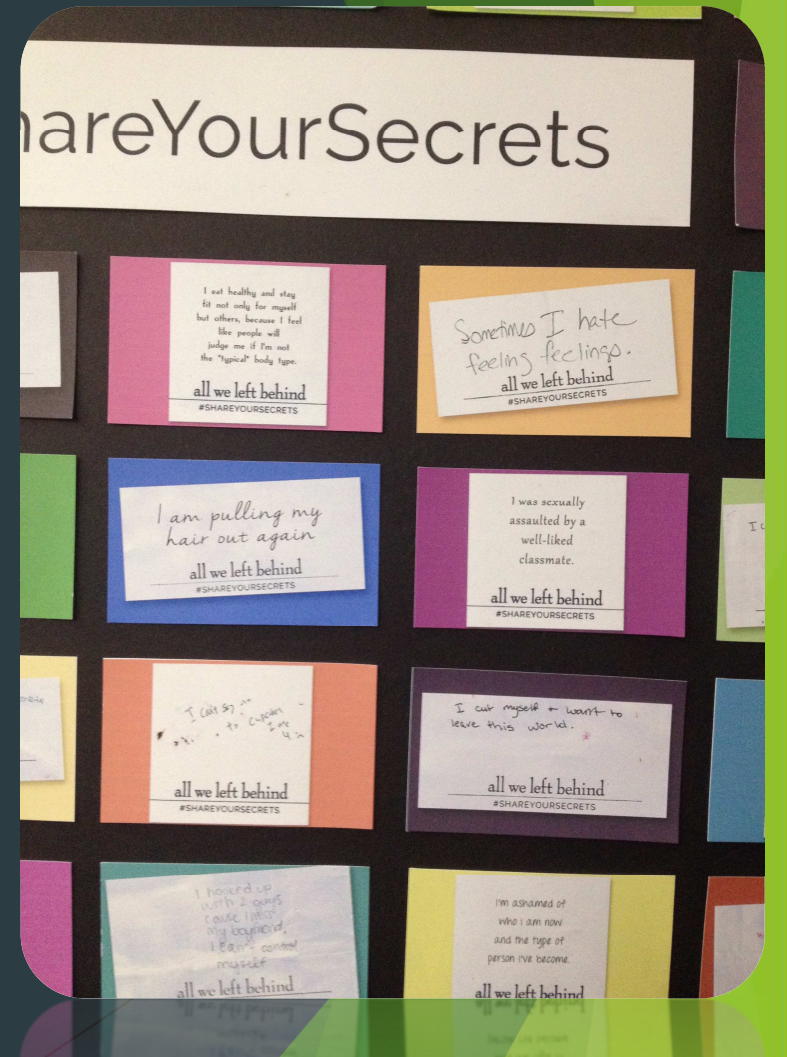 hareYourSecrets
I eat healthy and stay
fit not only for myself
but others, because I feel
like people will
judge me if I'm not
the "typical" body type.
all we left behind
#SHAREYOURSECRETS
Sometimes I hate
feeling feelings.
all we left behind
#SHAREYOURSECRETS
I am pulling my
hair out again
all we left behind
#SHAREYOURSECRETS
I was sexually
assaulted by a
well-liked
classmate.
all we left behind
#SHAREYOURSECRETS
I can't say no
to cupcakes
all we left behind
#SHAREYOURSECRETS
I cut myself + want to
leave this world.
all we left behind
#SHAREYOURSECRETS
I hooked up
with 2 guys
cause I miss
my boyfriend.
I can't control
myself
all we left behind
I'm ashamed of
who i am now
and the type of
person i've become.
all we left behind